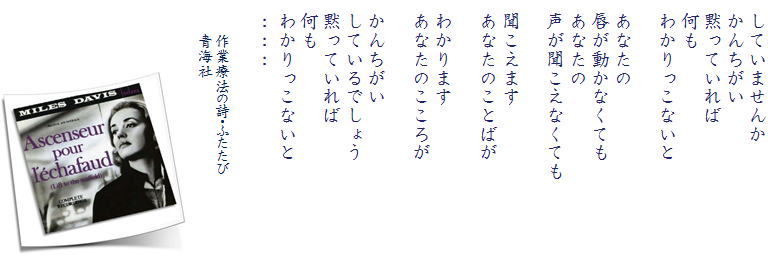 していませんか
かんちがい
黙っていれば
何も
わかりっこないと
あなたの
唇が動かなくても
あなたの
声が聞こえなくても
聞こえます
あなたのことばが
わかります
あなたのこころが
かんちがい
しているでしょう
黙っていれば
何も
わかりっこないと
：：：
作業療法の詩・ふたたび
青海社
MILES DAVIS
Ascenseur
pour
l'échafaud
(Lift to the scaffold)
COMPLETE
RECORDINGS